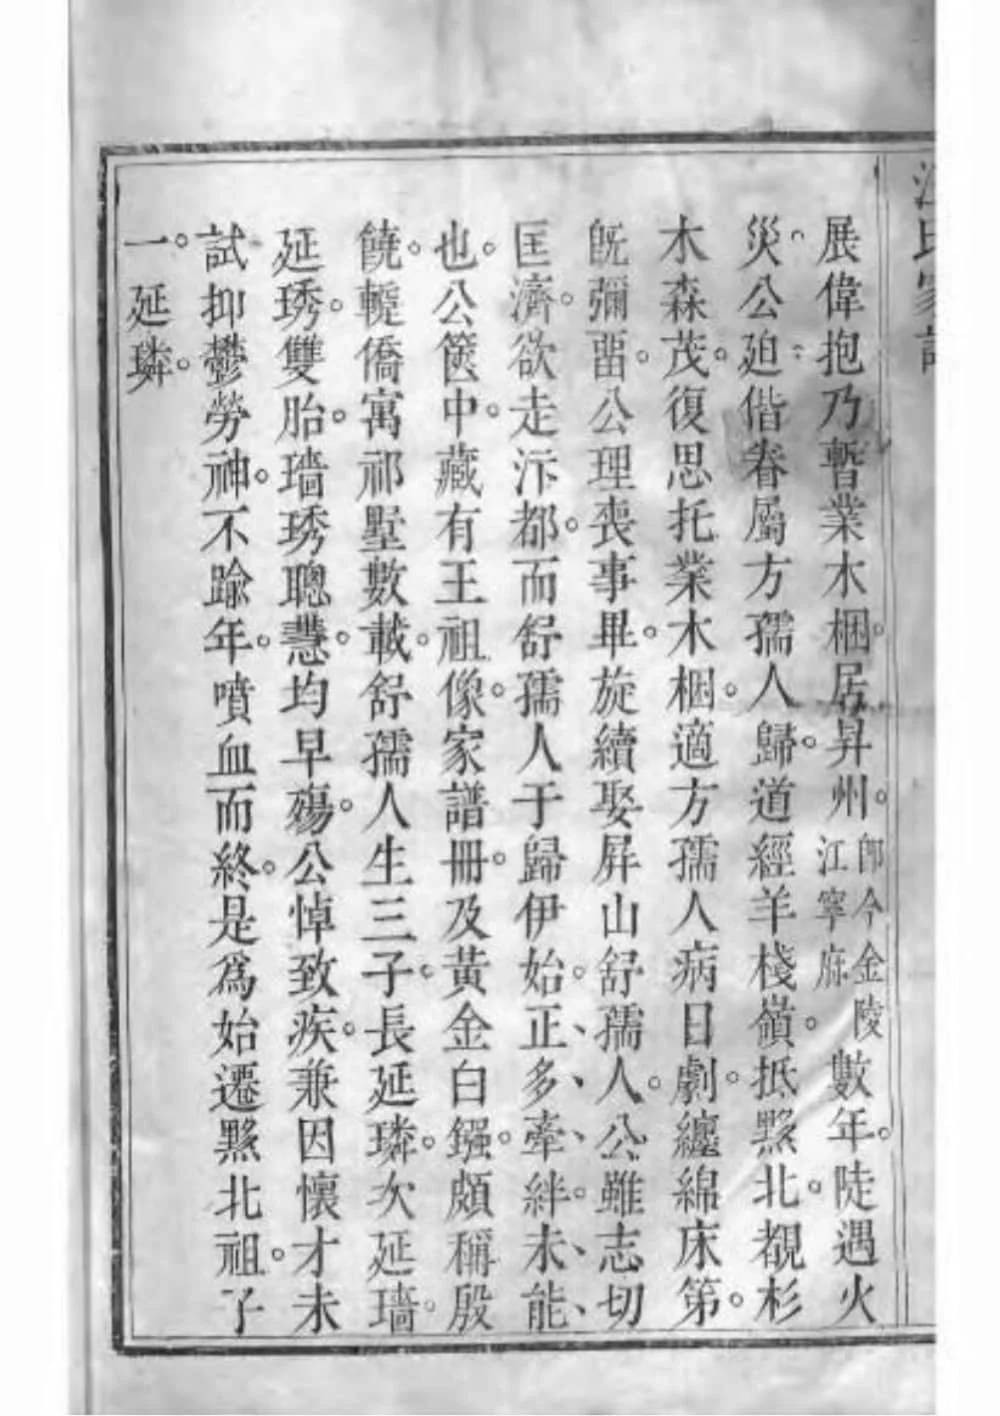 江氏家譜
展偉抱乃暫業木梱居昇州。即今金陵江寧府數年。陡遇火
災。公廹偕眷屬方孺人歸。道經羊棧嶺。抵黟北。覩杉
木森茂。復思托業木梱。適方孺人病日劇。纏綿床第。
既彌畱。公理喪事畢。旋續娶屛山舒孺人。公雖志切
匡濟。欲走汴都。而舒孺人于歸伊始。正、多、牽、絆。未、能、
也。公篋中。藏有王祖像。家譜冊。及黃金白鏹。頗稱殷
饒。輾僑寓祁墅數載。舒孺人生三子。長延璘。次延璛。
延琇。雙胎。璛琇聰慧。均早殤。公悼致疾。兼因懷才未
試抑鬱勞神。不踰年。噴血而終。是爲始遷黟北祖。子
一。延璘。